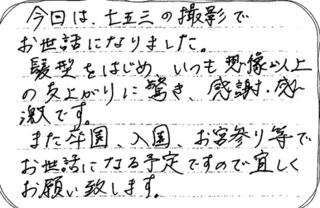 今日は、七五三の撮影で
お世話になりました。
髪型をはじめ、いつも想像以上
の仕上がりに驚き、感謝・感
激です。
また卒園、入園、お宮参り等で
お世話になる予定ですので宜しく
お願い致します。